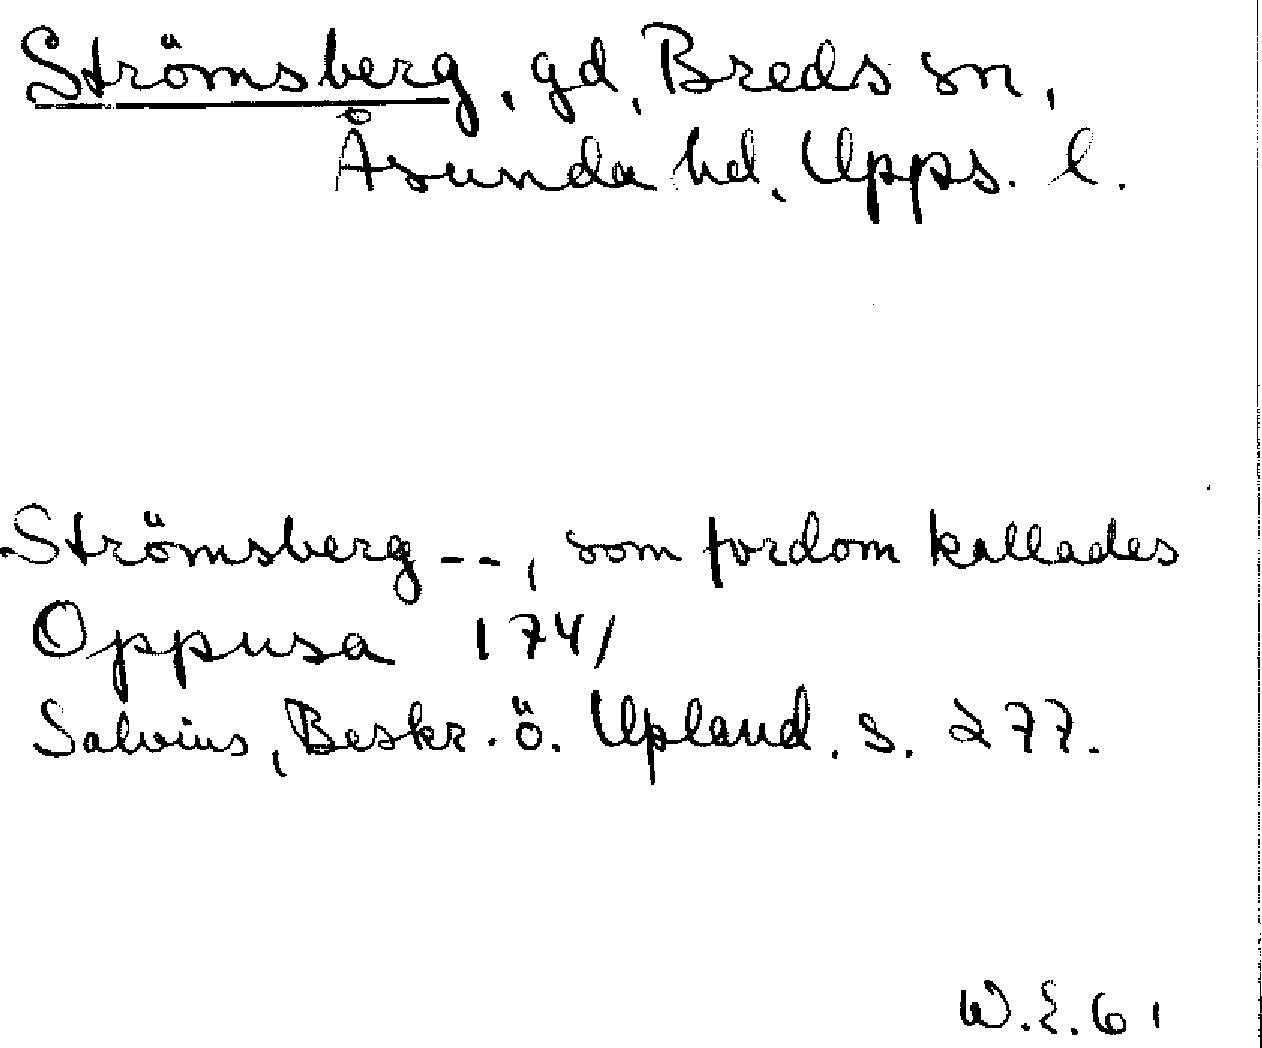 Strömsberg, gd, Breds sn,
Åsunda hd, Upps. l.
Strömsberg --, som fordom kallades
Oppusa 1741
Salvius, Beskr. ö. Upland. s. 277.
W.E. 61